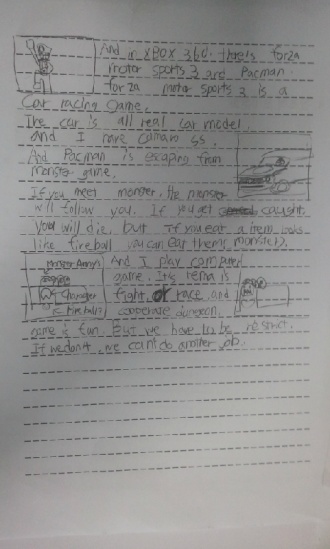 And in XBOX 360. there's for2a
motor sports 2 and Pacman.
for 2a motor sports 2 is a
Car racing Game.
The car is all real car model.
And I have camaro SS.
And Pacman is escaping from
monster game.
If you meet monster, the monster
will follow you. If you get caught,
You will die, but if you eat a item looks
like fireball you can eat them(monster).
And I play computer
game. Its tema is
fight, or race, and
cooperate dungeon.
Changer
Fireball
game is fun. But we have to be restrict.
If we don't, we can't do another job.